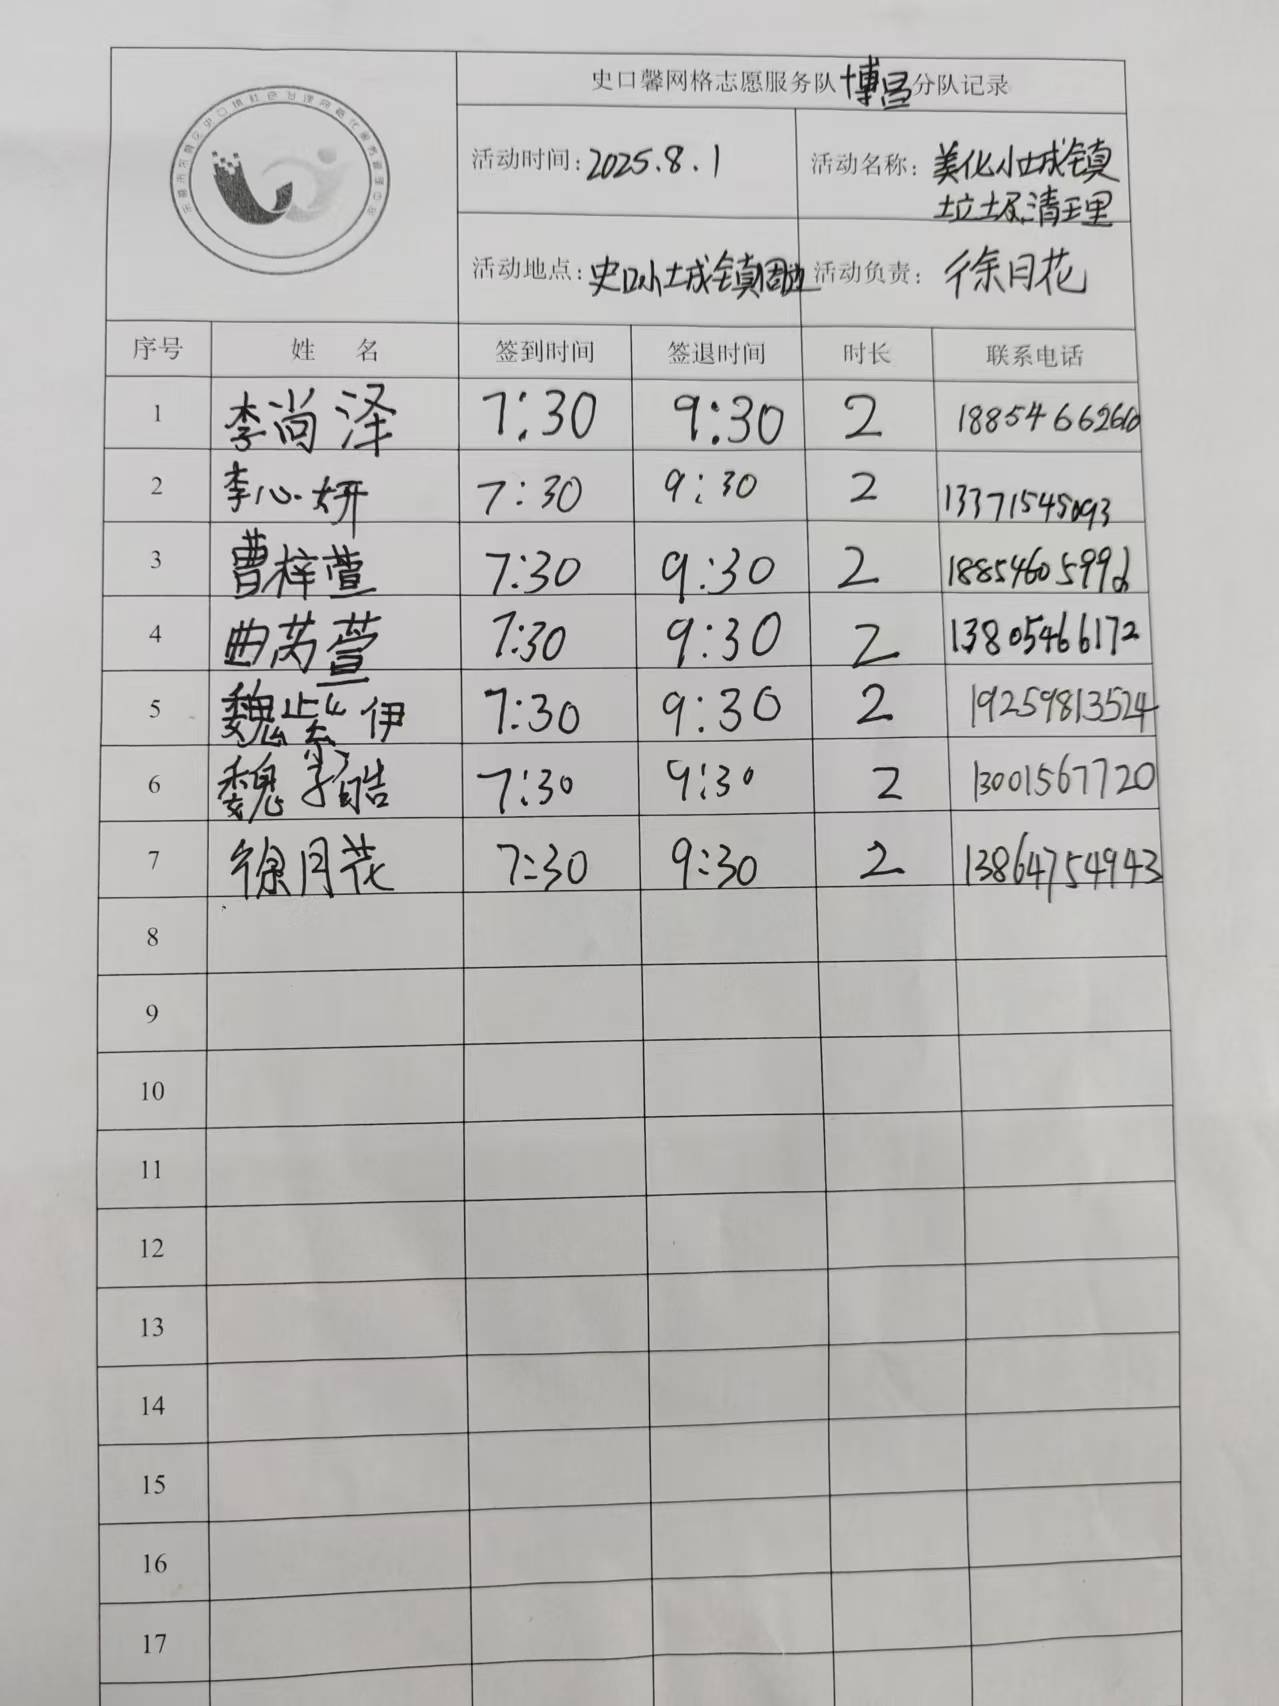 史口馨网格志愿服务队博昌分队记录
活动时间：2025.8.1 活动名称：美化小城镇
垃圾清理
活动地点：史口小城镇周边 活动负责：徐月花
序号 姓 名 签到时间 签退时间 时长 联系电话
1 李尚泽 7:30 9:30 2
2 李心妍 7:30 9:30 2 13371545093
3 曹梓萱 7:30 9:30 2
4 曲芮萱 7:30 9:30 2 13805466172
5 魏紫伊 7:30 9:30 2 19259813524
6 魏子皓 7:30 9:30 2 13001567720
7 徐月花 7:30 9:30 2 13864754943
8
9
10
11
12
13
14
15
16
17